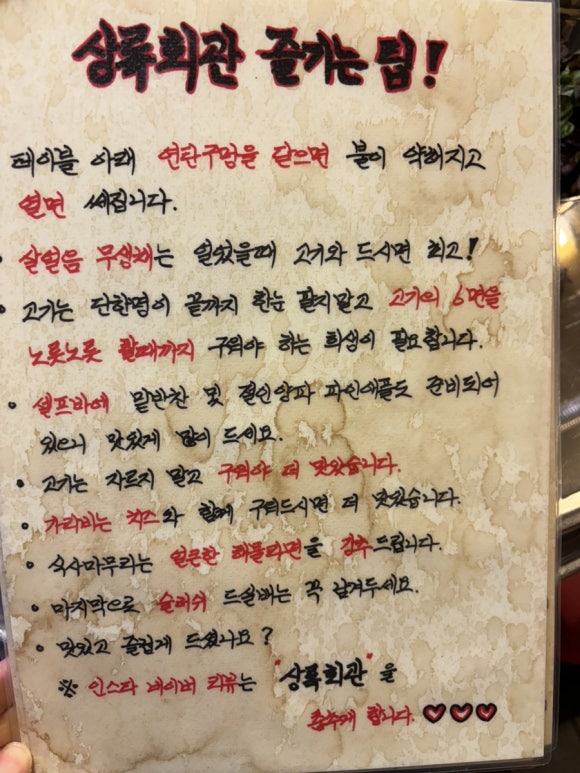 상록회관 즐기는 팁!
테이블 아래 연탄구멍을 닫으면 불이 약해지고
열면 쎄집니다.
• 살얼음 무생채는 얼었을때 고기와 드시면 최고!
• 고기는 단한명이 끝까지 한눈 팔지말고 고기의 6면을
노릇노릇 할때까지 구워야 하는 희생이 필요합니다.
• 셀프바에 밑반찬 및 절인양파 파인애플도 준비되어
있으니 맛있게 많이 드세요.
• 고기는 자르지 말고 구워야 더 맛있습니다.
• 가리비는 치즈와 함께 구워드시면 더 맛있습니다.
• 식사마무리는 얼큰한 해물라면을 강추드립니다.
• 마지막으로 슬러쉬 드실배는 꼭 남겨두세요.
• 맛있고 즐겁게 드셨나요?
※ 인스타 네이버 리뷰는 "상록회관"을
춤추게 합니다. ♡♡♡